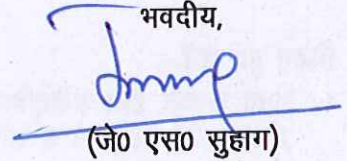 भवदीय,
(जे0 एस0 सुहाग)